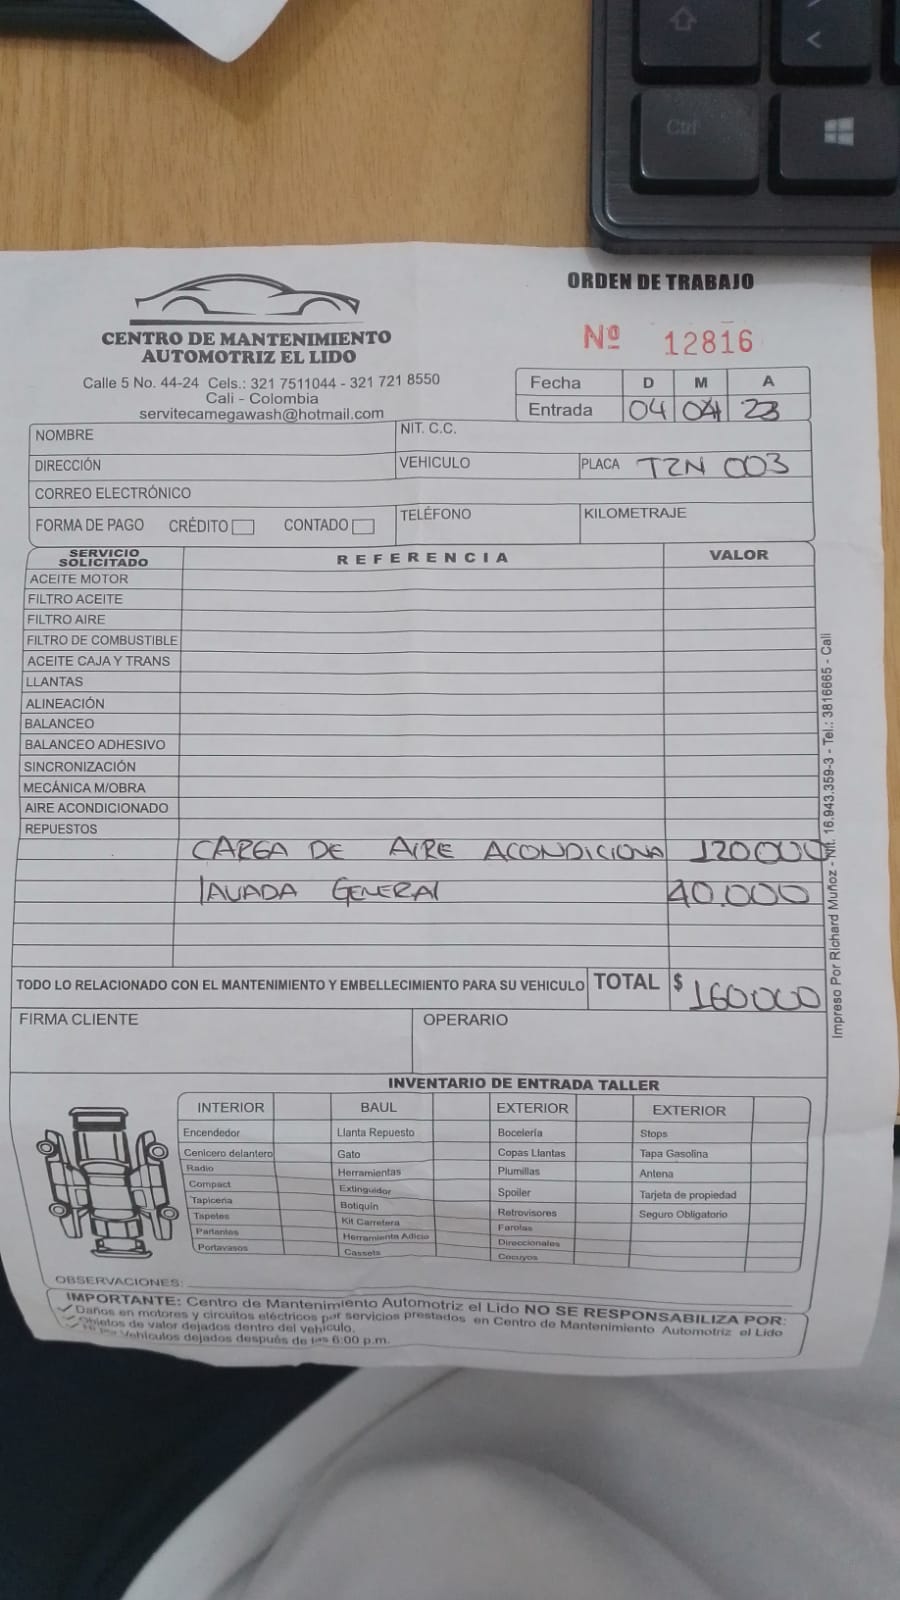 Ctrl
ORDEN DE TRABAJO
Nº 12816
CENTRO DE MANTENIMIENTO
AUTOMOTRIZ EL LIDO
Calle 5 No. 44-24 Cels.: 321 7511044 - 321 721 8550
Cali - Colombia
servitecamegawash@hotmail.com
Fecha D M A
Entrada 04 04 23
NOMBRE NIT. C.C.
DIRECCIÓN VEHICULO PLACA TZN 003
CORREO ELECTRÓNICO
FORMA DE PAGO CRÉDITO CONTADO TELÉFONO KILOMETRAJE
SERVICIO SOLICITADO REFERENCIA VALOR
ACEITE MOTOR
FILTRO ACEITE
FILTRO AIRE
FILTRO DE COMBUSTIBLE
ACEITE CAJA Y TRANS
LLANTAS
ALINEACIÓN
BALANCEO
BALANCEO ADHESIVO
SINCRONIZACIÓN
MECÁNICA M/OBRA
AIRE ACONDICIONADO
REPUESTOS
CARGA DE AIRE ACONDICIONA 120000
LAVADA GENERAL 40.000
TODO LO RELACIONADO CON EL MANTENIMIENTO Y EMBELLECIMIENTO PARA SU VEHICULO TOTAL $ 160000
FIRMA CLIENTE OPERARIO
Impreso Por Richard Muñoz - Nit. 16.943.359-3 - Tel.: 3816665 - Cali
INVENTARIO DE ENTRADA TALLER
INTERIOR BAUL EXTERIOR EXTERIOR
Encendedor Llanta Repuesto Bocelería Stops
Cenicero delantero Gato Copas Llantas Tapa Gasolina
Radio Herramientas Plumillas Antena
Compact Extinguidor Spoiler Tarjeta de propiedad
Tapiceria Botiquin Retrovisores Seguro Obligatorio
Tapetes Kit Carretera Farolas
Parlantes Herramienta Adicio Direccionales
Portavasos Cassets Cocuyos
OBSERVACIONES:
IMPORTANTE: Centro de Mantenimiento Automotriz el Lido NO SE RESPONSABILIZA POR:
Daños en motores y circuitos eléctricos por servicios prestados en Centro de Mantenimiento Automotriz el Lido
Objetos de valor dejados dentro del vehículo.
Vehículos dejados después de las 6:00 p.m.